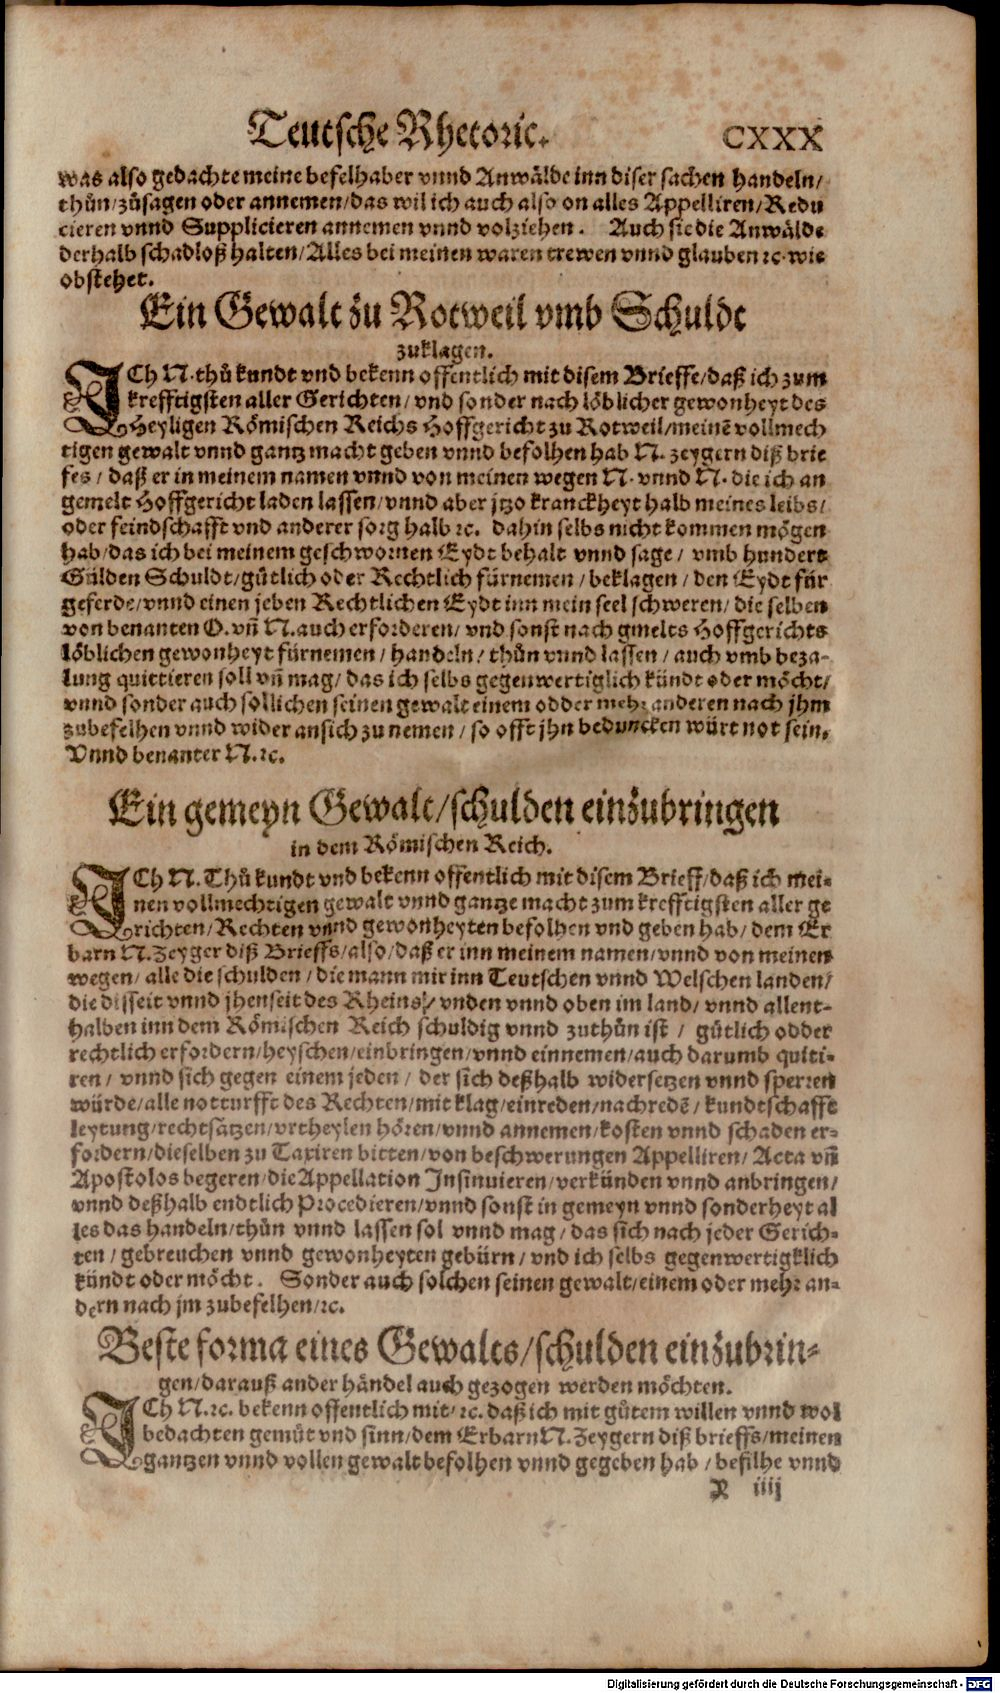 Teutsche Rhetoric. CXXX
was also gedachte meine befelhaber vnnd Anwälde inn diser sachen handeln/
thůn/zůsagen oder annemen/das wil ich auch also on alles Appelliren/Redu
cieren vnnd Supplicieren annemen vnnd volziehen. Auch sie die Anwälde
derhalb schadloß halten/Alles bei meinen waren trewen vnnd glauben ꝛc. wie
obstehet.
Ein Gewalt zu Rotweil vmb Schuldt
zuklagen.
ICh N. thů kundt vnd bekenn offentlich mit disem Brieffe/daß ich zum
krefftigsten aller Gerichten/ vnd sonder nach löblicher gewonheyt des
Heyligen Römischen Reichs Hoffgericht zu Rotweil/meinē vollmech
tigen gewalt vnnd gantz macht geben vnnd befolhen hab N. zeygern diß brie
fes/ daß er in meinem namen vnnd von meinen wegen N. vnnd N. die ich an
gemelt Hoffgericht laden lassen/vnnd aber jtzo kranckheyt halb meines leibs/
oder feindschafft vnd anderer sorg halb ꝛc. dahin selbs nicht kommen mögen
hab/das ich bei meinem geschwornen Eydt behalt vnnd sage/ vmb hundert
Gülden Schuldt/gütlich oder Rechtlich fürnemen/beklagen/den Eydt für
geferde/vnnd einen jeben Rechtlichen Eydt inn mein seel schweren/die selben
von benanten O. vñ N. auch erforderen/ vnd sonst nach gmelts Hoffgerichts
löblichen gewonheyt fürnemen/ handeln/ thůn vnnd lassen/auch vmb beza-
lung quittieren soll vñ mag/das ich selbs gegenwertiglich kündt oder möcht/
vnnd sonder auch sollichen seinen gewalt einem odder mehr anderen nach jhm
zubefelhen vnnd wider ansich zu nemen/so offt jhn beduncken würt not sein.
Vnnd benanter N. ꝛc.
Ein gemeyn Gewalt/schulden einzubringen
in dem Römischen Reich.
ICh N. Thů kundt vnd bekenn offentlich mit disem Brieff/daß ich mei-
nen vollmechtigen gewalt vnnd gantze macht zum krefftigsten aller ge
richten/Rechten vnnd gewonheyten befolhen vnd geben hab/ dem Er
barn N. Zeyger diß Brieffs/also/daß er inn meinem namen/vnnd von meinen
wegen/ alle die schulden/die mann mir inn Teutschen vnnd Welschen landen/
die disseit vnnd jhenseit des Rheins/ vnden vnnd oben im land/ vnnd allent-
halben inn dem Römischen Reich schuldig vnnd zuthůn ist/ gütlich odder
rechtlich erfordern/heyschen/einbringen/vnnd einnemen/auch darumb quiti-
ren/ vnnd sich gegen einem jeden/ der sich deßhalb widersetzen vnnd sperren
würde/alle notturfft des Rechten/mit klag/einreden/nachredē/kundtschafft
leytung/rechtsätzen/vrtheylen hören/vnnd annemen/kosten vnnd schaden er-
fordern/dieselben zu Taxiren bitten/von beschwerungen Appelliren/ Acta vñ
Apostolos begeren/die Appellation Insinuieren/verkünden vnnd anbringen/
vnnd deßhalb endtlich Procedieren/vnnd sonst in gemeyn vnnd sonderheyt al
les das handeln/thůn vnnd lassen sol vnnd mag/das sich nach jeder Gerich-
ten/ gebreuchen vnnd gewonheyten gebürn/ vnd ich selbs gegenwertigklich
kündt oder möcht. Sonder auch solchen seinen gewalt/einem oder mehr an-
dern nach jm zubefelhen/ꝛc.
Beste forma eines Gewalts/schulden einzubrin-
gen/darauß ander händel auch gezogen werden möchten.
ICh N. ꝛc. bekenn offentlich mit/ꝛc. daß ich mit gůtem willen vnnd wol
bedachten gemüt vnd sinn/dem Erbarn N. Zeygern diß brieffs/meinen
gantzen vnnd vollen gewalt befolhen vnnd gegeben hab/befilhe vnnd
X iiij
Digitalisierung gefördert durch die Deutsche Forschungsgemeinschaft - DFG